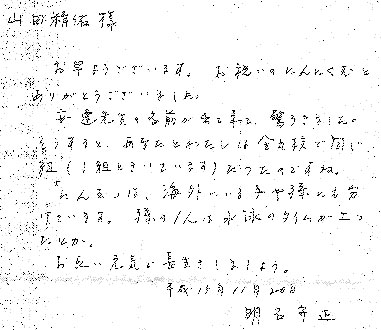 様
お早ようございます。お祝いのにんにくむど
ありがとうございました。
安達先生の名前が出て来て、驚きました。
そうすると、あなたとわたしは金兵校で同じ
組(1組といいています)だったのですね。
にんにくは、海外にいる子や孫にも分
けています。孫の1人は水泳のタイムが上っ
たとか。
お互い元気で長生きしましょう。
平成15年11月20日